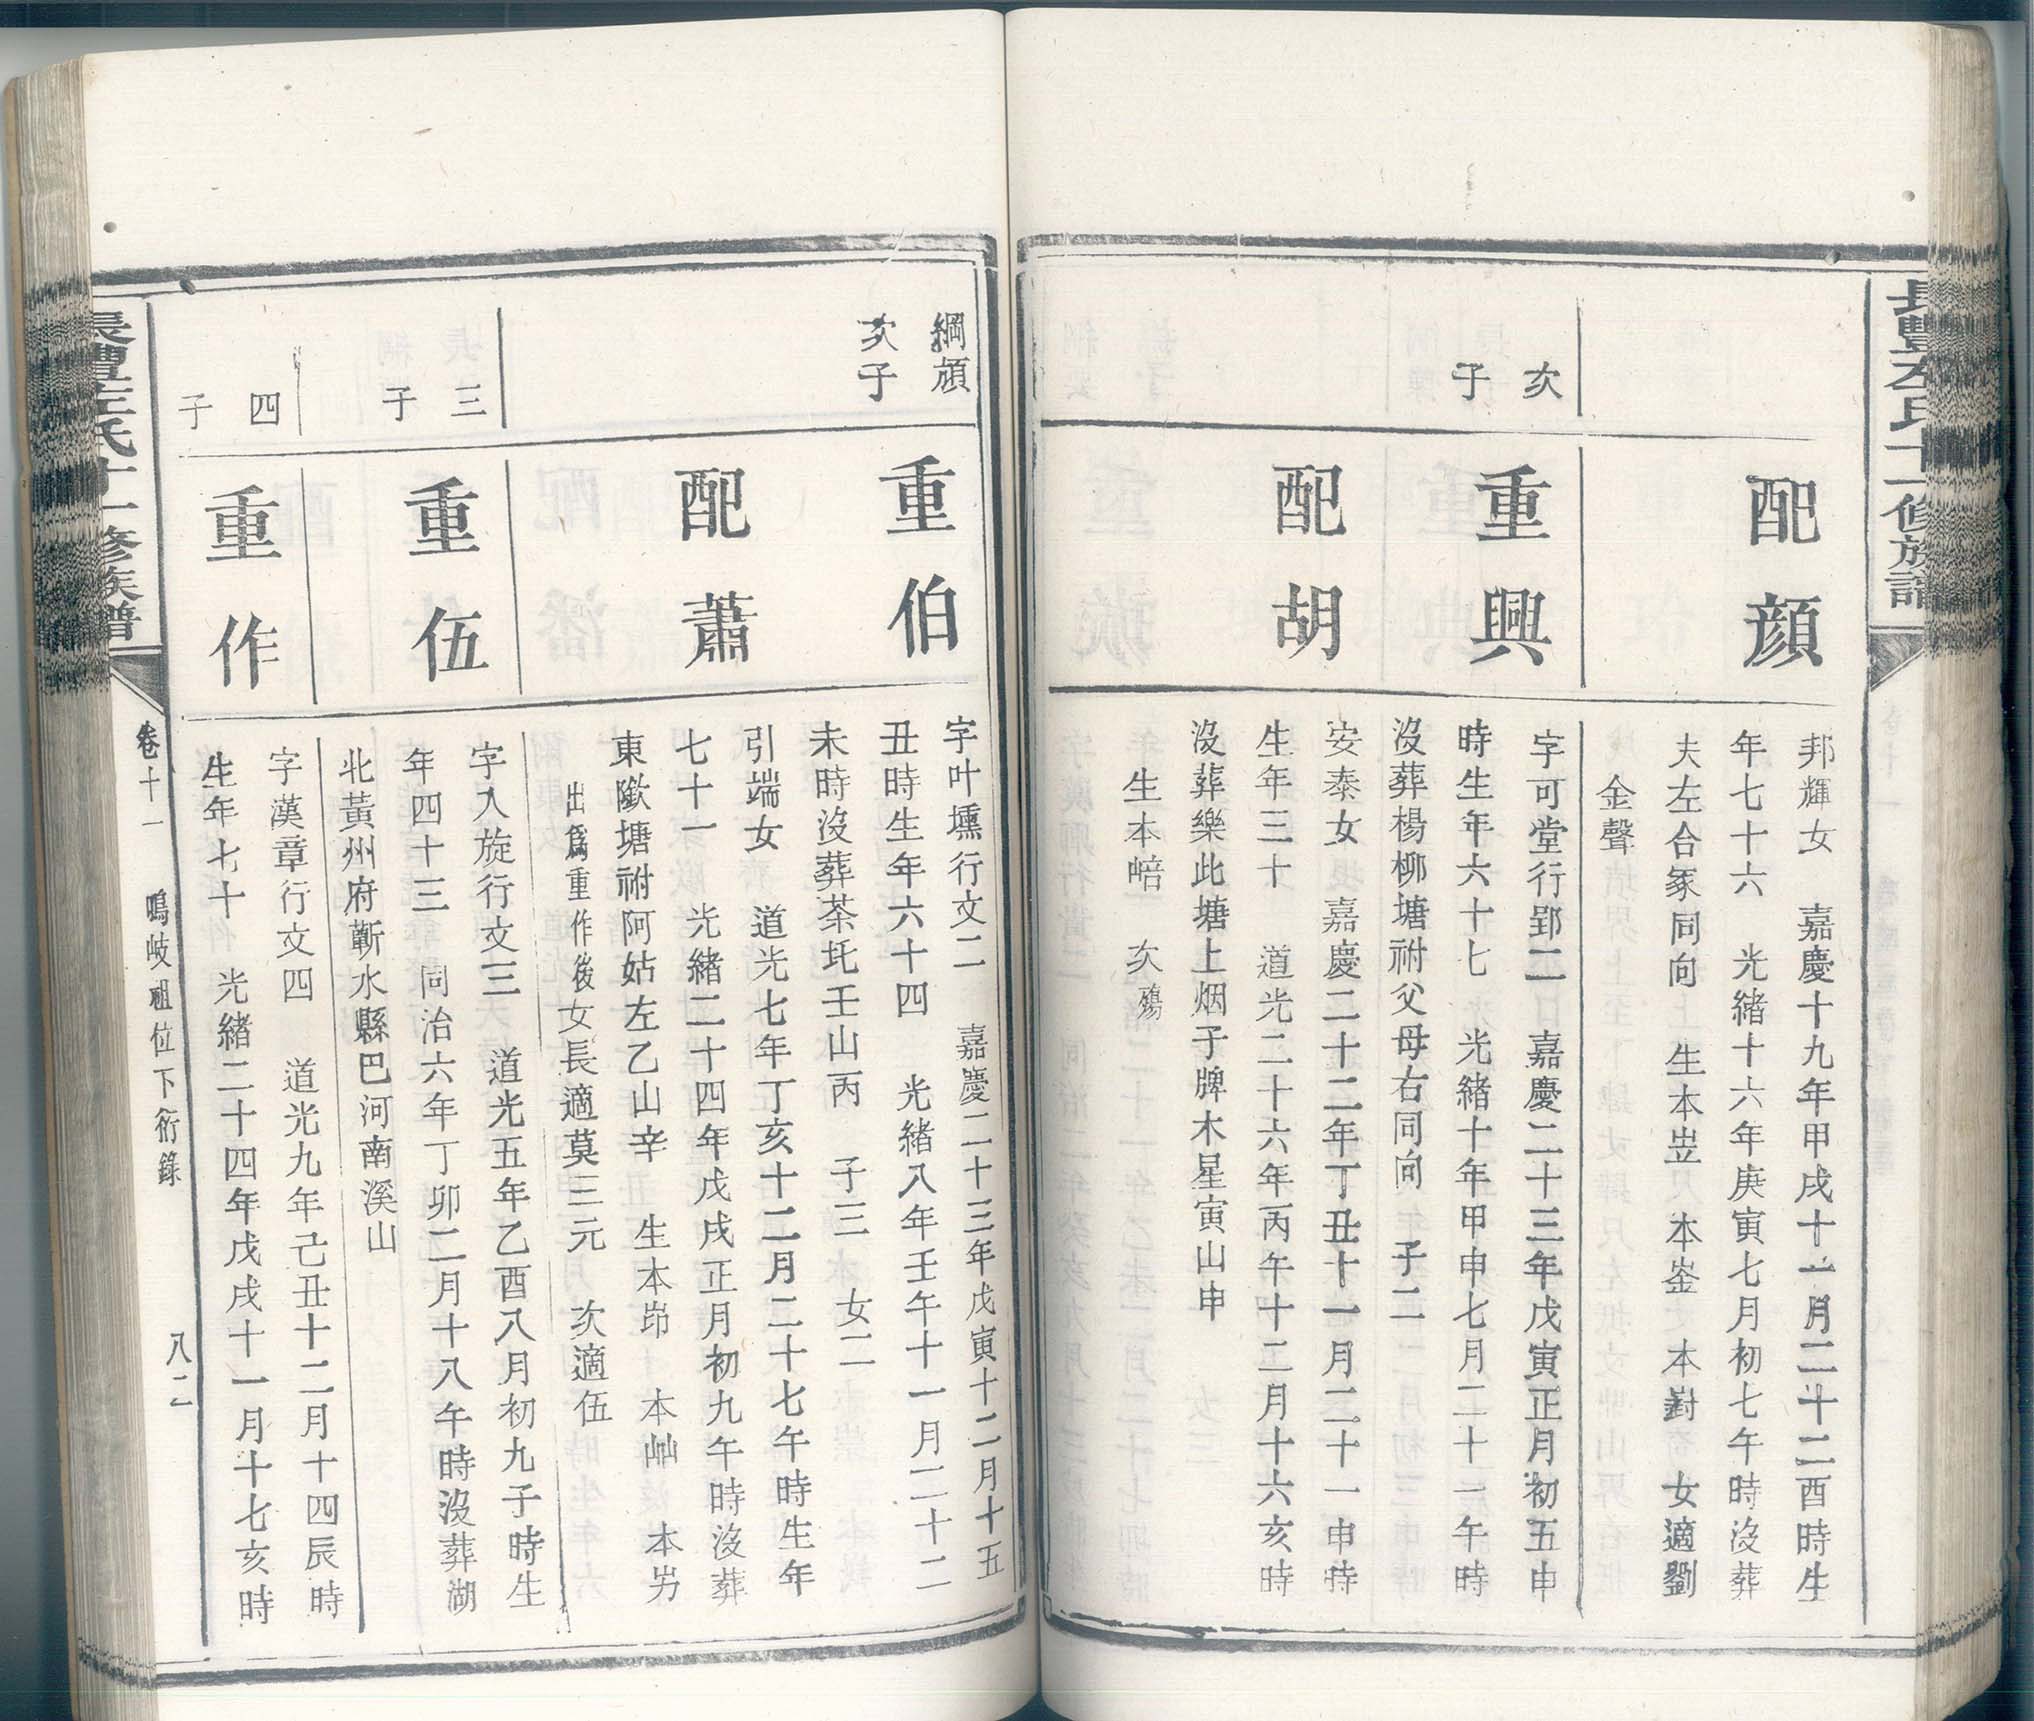 長豐左氏十一修族譜
配顏
邦輝女　嘉慶十九年甲戌十一月二十二酉時生
年七十六　光緒十六年庚寅七月初七午時沒葬
夫左合冢同向　生本岦　本崟　本嶎　女適劉
金聲
次
子
重興
字可堂行郢二　嘉慶二十三年戊寅正月初五申
時生年六十七　光緒十年甲申七月二十一午時
沒葬楊柳塘祔父母右同向　子二
配胡
安泰女　嘉慶二十二年丁丑十一月二十一申時
生年三十　道光二十六年丙午十二月十六亥時
沒葬樂此塘上烟子牌木星寅山申
生本㟝　次殤
綱頎
次子
重伯
字叶壎行文二　嘉慶二十三年戊寅十二月十五
丑時生年六十四　光緒八年壬午十一月二十二
未時沒葬茶圫壬山丙　子三　女二
配蕭
引端女　道光七年丁亥十二月二十七午時生年
七十一　光緒二十四年戊戌正月初九午時沒葬
東歐塘祔阿姑左乙山辛　生本岇　本屾　本屶
出為重作後女長適莫三元　次適伍
三
子
重伍
字入旋行文三　道光五年乙酉八月初九子時生
年四十三　同治六年丁卯二月十八午時沒葬湖
北黃州府蘄水縣巴河南溪山
四
子
重作
字漢章行文四　道光九年己丑十二月十四辰時
生年七十　光緒二十四年戊戌十一月十七亥時
長豐左氏十一修族譜
卷十一　鳴岐祖位下衍錄　八二